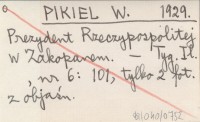 PIKIEL W. 1929.
Prezydent Rzeczypospolitej
w Zakopanem. — Tyg. Il.
, nr 6: 101, tylko 2 fot.
z objaśn.